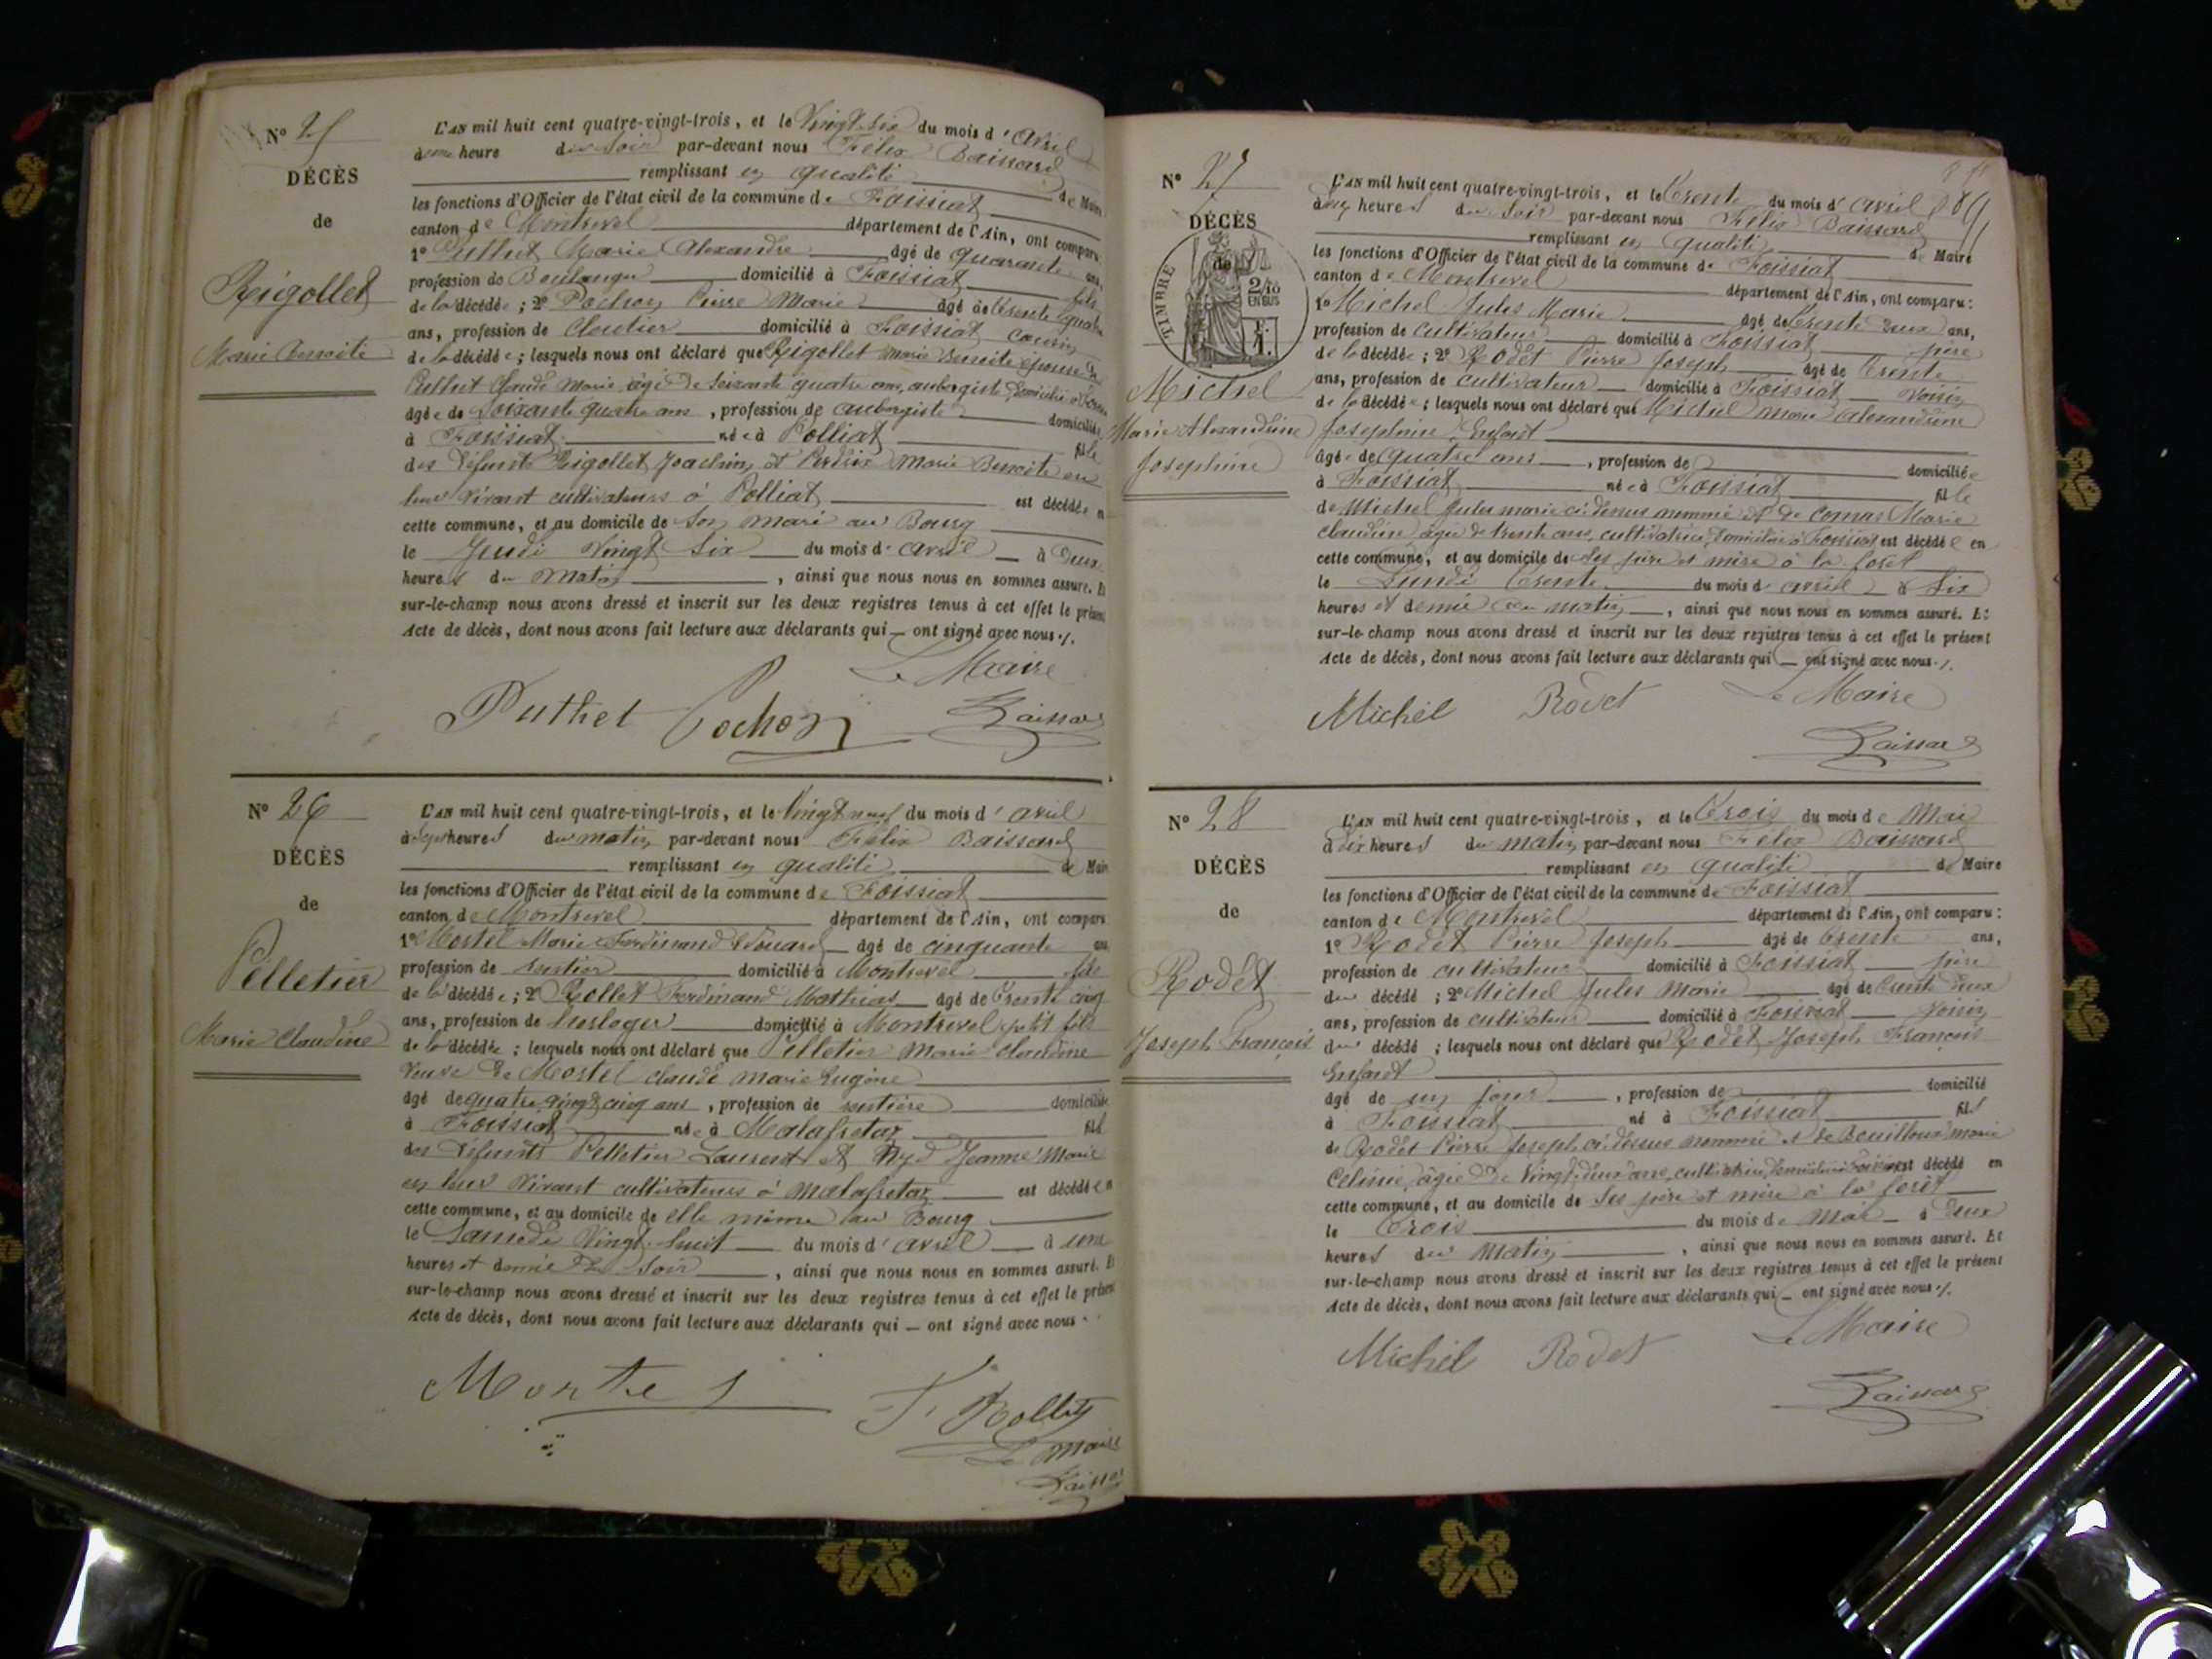 N° 25
DÉCÈS
de
Rigollet
Marie Benoite
L'AN mil huit cent quatre-vingt-trois, et le Vingt-six du mois d'avril
à une heure du soir par-devant nous Félix Baissard
remplissant en qualité de Maire
les fonctions d'Officier de l'état civil de la commune de Foissiat
canton de Montrevel département de l'Ain, ont comparu
1° Puthet Marie Alexandre âgé de quarante ans,
profession de Boulanger domicilié à Foissiat fils
de la décédée; 2° Pochon Pierre Marie âgé de trente quatre
ans, profession de Cloutier domicilié à Foissiat cousin
de la décédée; lesquels nous ont déclaré que Rigollet Marie Benoite épouse de
Puthet Claude Marie, âgé de soixante quatre ans, aubergiste, domicilié à
âgée de soixante quatre ans, profession de aubergiste domiciliée
à Foissiat née à Polliat fille
des défunts Rigollet Joachim et Perdrix Marie Benoite en
leur vivant cultivateurs à Polliat est décédée en
cette commune, et au domicile de son mari au Bourg
le Jeudi Vingt six du mois d'avril à deux
heures du matin, ainsi que nous nous en sommes assuré. Et
sur-le-champ nous avons dressé et inscrit sur les deux registres tenus à cet effet le présent
Acte de décès, dont nous avons fait lecture aux déclarants qui — ont signé avec nous ./.
Le Maire
Puthet Pochon Baissard
N° 26
DÉCÈS
de
Pelletier
Marie Claudine
L'AN mil huit cent quatre-vingt-trois, et le Vingt neuf du mois d'avril
à sept heures du matin par-devant nous Félix Baissard
remplissant en qualité de Maire
les fonctions d'Officier de l'état civil de la commune de Foissiat
canton de Montrevel département de l'Ain, ont comparu
1° Mortel Marie Ferdinand Edouard âgé de cinquante ans
profession de rentier domicilié à Montrevel fils
de la décédée; 2° Rollet Ferdinand Mathias âgé de trente cinq
ans, profession de horloger domicilié à Montrevel petit fils
de la décédée; lesquels nous ont déclaré que Pelletier Marie Claudine
Veuve de Mortel Claude Marie Eugène
âgé de quatre vingt cinq ans, profession de rentière domiciliée
à Foissiat née à Malafretaz fille
des défunts Pelletier Laurent et Jeanne Marie
en leur vivant cultivateurs à Malafretaz est décédée en
cette commune, et au domicile de elle même au Bourg
le Samedi Vingt huit du mois d'avril à une
heures et demie du soir, ainsi que nous nous en sommes assuré. Et
sur-le-champ nous avons dressé et inscrit sur les deux registres tenus à cet effet le présent
Acte de décès, dont nous avons fait lecture aux déclarants qui — ont signé avec nous
Mortel F. Rollet
Le Maire
Baissard
N° 27
DÉCÈS
de
TIMBRE
2/10
EN SUS
Michel
Marie Alexandrine
Joséphine
L'AN mil huit cent quatre-vingt-trois, et le trente du mois d'avril
à cinq heures du soir par-devant nous Félix Baissard
remplissant en qualité de Maire
les fonctions d'Officier de l'état civil de la commune de Foissiat
canton de Montrevel département de l'Ain, ont comparu :
1° Michel Jules Marie âgé de trente deux ans,
profession de cultivateur domicilié à Foissiat père
de la décédée; 2° Rodet Pierre Joseph âgé de trente
ans, profession de cultivateur domicilié à Foissiat voisin
de la décédée; lesquels nous ont déclaré que Michel Marie Alexandrine
Joséphine Enfant
âgée de quatre ans, profession de domiciliée
à Foissiat née à Foissiat fille
de Michel Jules Marie ci-dessus nommé et de Comas Marie
Claudine âgée de trente ans, cultivatrice, domiciliée à Foissiat est décédée en
cette commune, et au domicile de ses père et mère à la forêt
le Lundi trente du mois d'avril à six
heures et demie du matin, ainsi que nous nous en sommes assuré. Et
sur-le-champ nous avons dressé et inscrit sur les deux registres tenus à cet effet le présent
Acte de décès, dont nous avons fait lecture aux déclarants qui — ont signé avec nous ./.
Michel Rodet Le Maire
Baissard
N° 28
DÉCÈS
de
Rodet
Joseph François
L'AN mil huit cent quatre-vingt-trois, et le trois du mois de Mai
à dix heures du matin par-devant nous Félix Baissard
remplissant en qualité de Maire
les fonctions d'Officier de l'état civil de la commune de Foissiat
canton de Montrevel département de l'Ain, ont comparu :
1° Rodet Pierre Joseph âgé de trente ans,
profession de cultivateur domicilié à Foissiat père
du décédé; 2° Michel Jules Marie âgé de trente deux
ans, profession de cultivateur domicilié à Foissiat voisin
du décédé; lesquels nous ont déclaré que Rodet Joseph François
Enfant
âgé de un jour, profession de domicilié
à Foissiat né à Foissiat fils
de Rodet Pierre Joseph, ci-dessus nommé et de Bouilloud Marie
Celinie, âgée de vingt-deux ans, cultivatrice, domiciliée à Foissiat est décédé en
cette commune, et au domicile de ses père et mère à la forêt
le trois du mois de mai à deux
heures du matin, ainsi que nous nous en sommes assuré. Et
sur-le-champ nous avons dressé et inscrit sur les deux registres tenus à cet effet le présent
Acte de décès, dont nous avons fait lecture aux déclarants qui — ont signé avec nous ./.
Michel Rodet Le Maire
Baissard